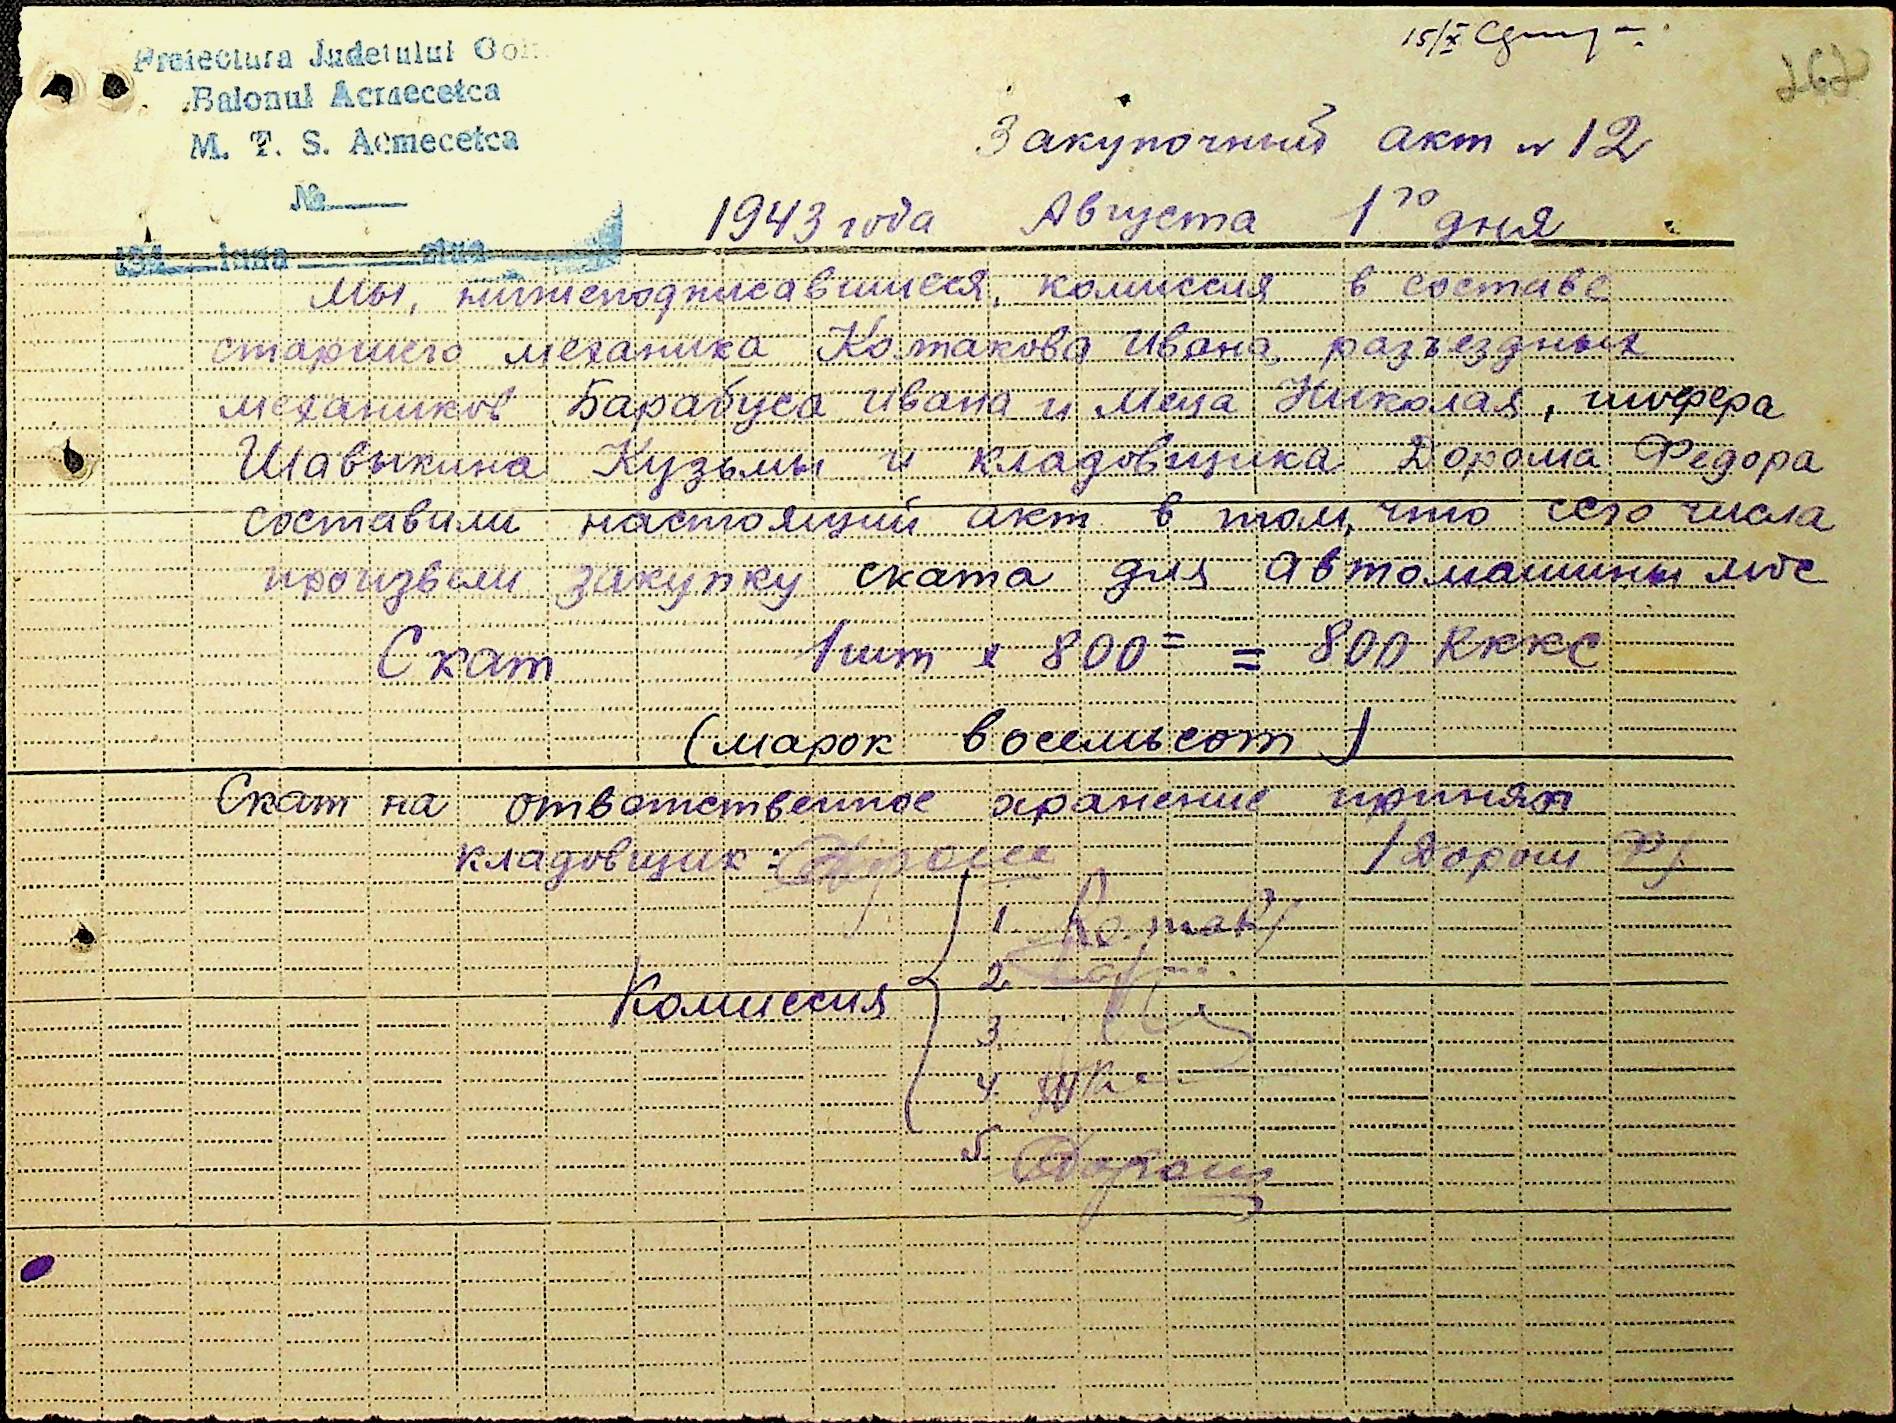 15/X
262
Prefectura Judetului Gol
Raionul Acmecetca
M. T. S. Acmecetca
№
194 luna ziua
Закупочный акт № 12
1943 года Августа 1го дня
Мы, нижеподписавшиеся, комиссия в составе
старшего механика Колтакова Ивана, разъездных
механиков Барабуса Ивана и Меца Николая, шофера
Шавыкина Кузьмы и кладовщика Дороша Федора
составили настоящий акт в том, что сего числа
произвели закупку ската для Автомашины мтс
Скат 1шт х 800= = 800 RKKS
(марок восемьсот)
Скат на ответственное хранение принял
кладовщик: Дорош /Дорош Ф/
1.
2.
Комиссия
3.
4.
5. Дорош